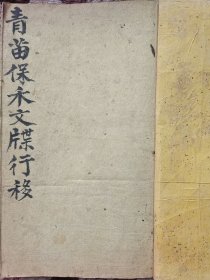 青苗保禾文牒行移